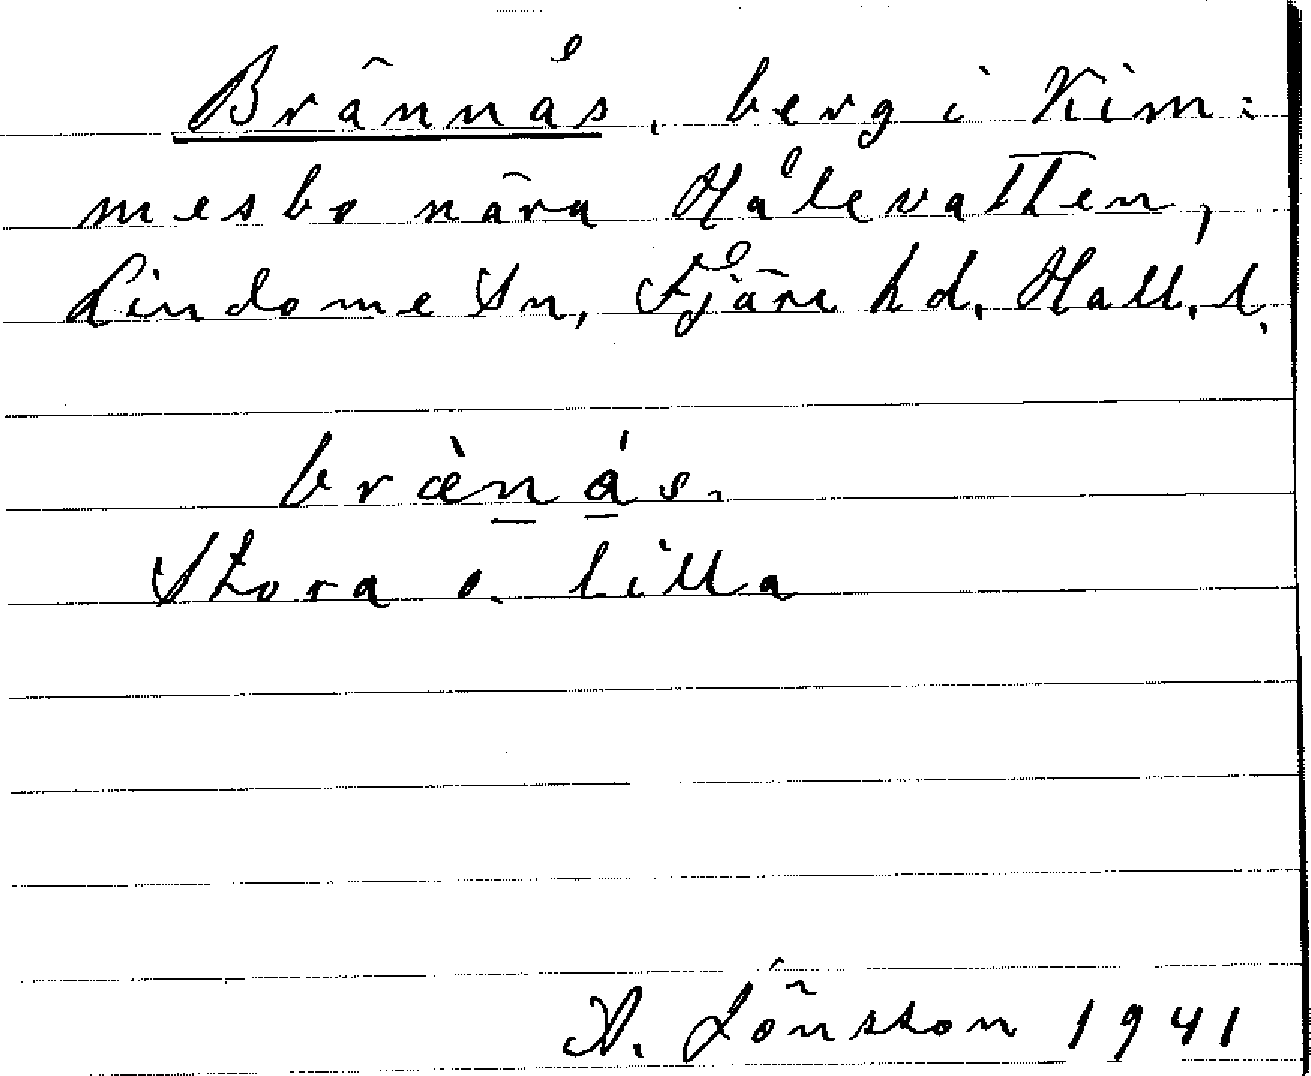 Brännås, berg i Kim=
mesbo nära Hålevatten,
Lindome Sn, Fjäre hd. Hall. l.
bræ̀nás.
Stora o. lilla
A. Jönsson 1941